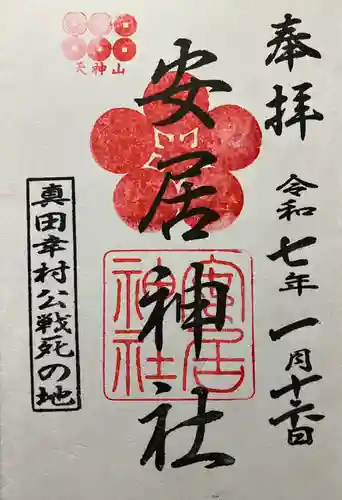 奉拝
令和七年一月十六日
天神山
安居神社
安居
神社
真田幸村公戦死の地